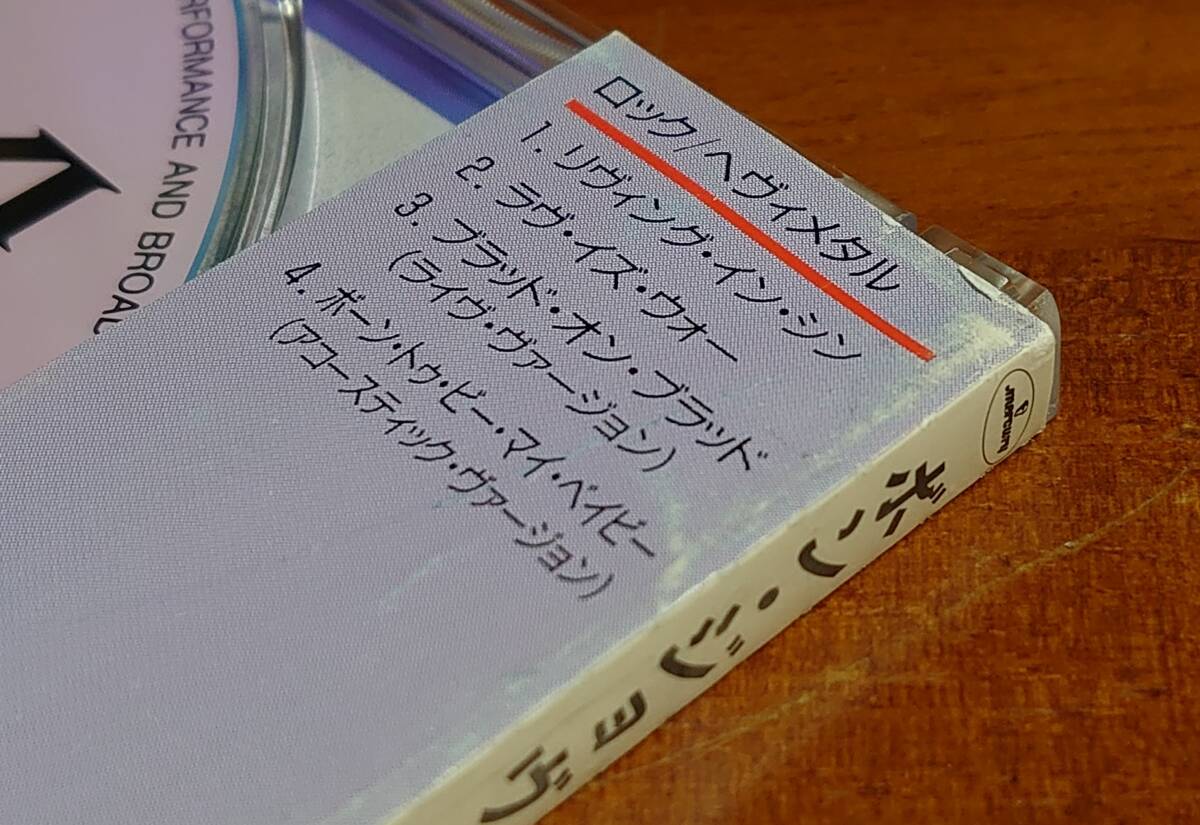 ロック/ヘヴィメタル
1. リヴィング・イン・シン
2. ラヴ・イズ・ウォー
3. ブラッド・オン・ブラッド
(ライヴ・ヴァージョン)
4. ボーン・トゥ・ビー・マイ・ベイビー
(アコースティック・ヴァージョン)
mercury
ボン・ジョヴ
RFORMANCE AND BROAD